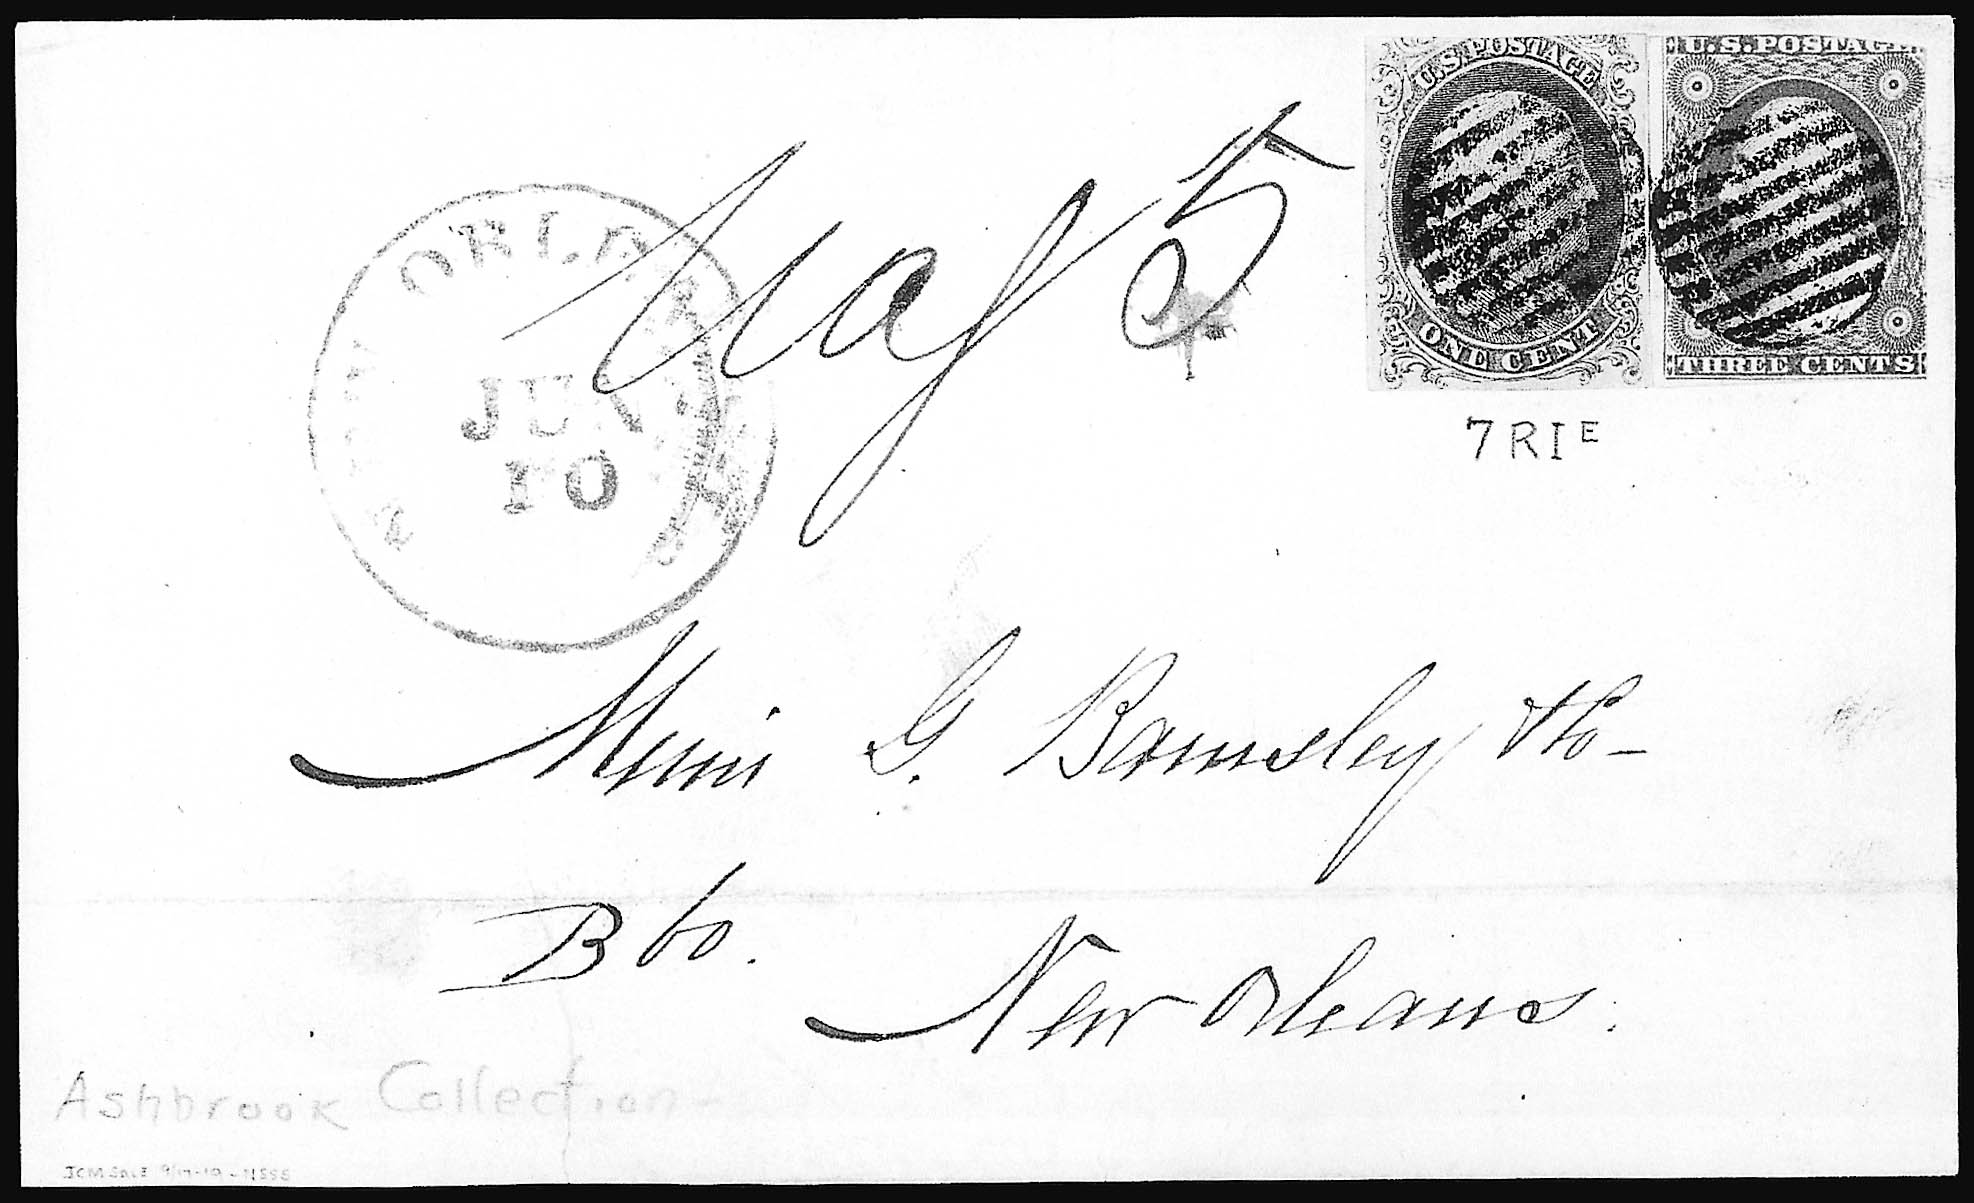 U.S. POSTAGE
ONE CENT
U.S. POSTAGE
THREE CENTS
ORLE
JUN
10
5
7 R1E
Messrs G. Barnsley & Co-
New Orleans.
Ashbrook Collection-